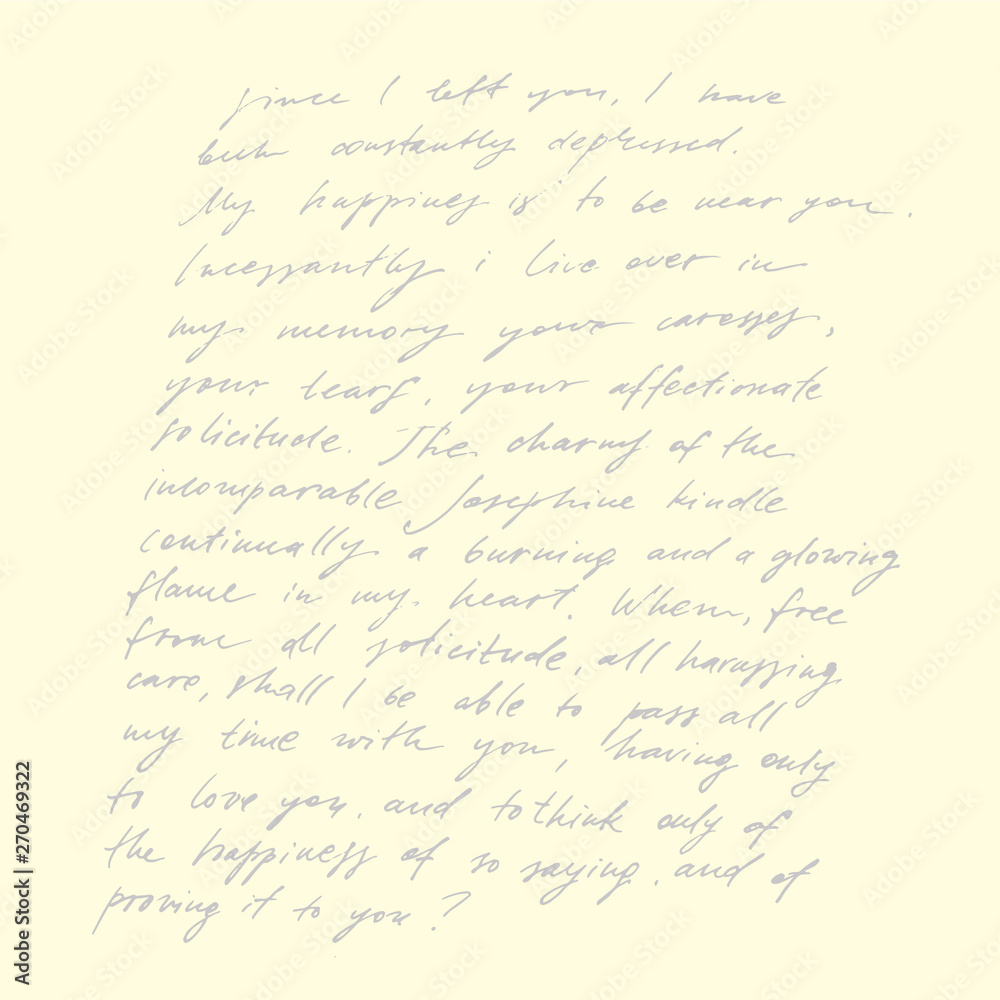 since I left you, I have
been constantly depressed.
My happines is to be near you.
Incessantly i live over in
my memory your caresses,
your tears, your affectionate
solicitude. The charms of the
incomparable Josephine kindle
continually a burning and a glowing
flame in my heart. When, free
from all solicitude, all harassing
care, shall I be able to pass all
my time with you, having only
to love you, and to think only of
the happiness of so saying, and of
proving it to you?
Adobe Stock | #270469322
Adobe Stock